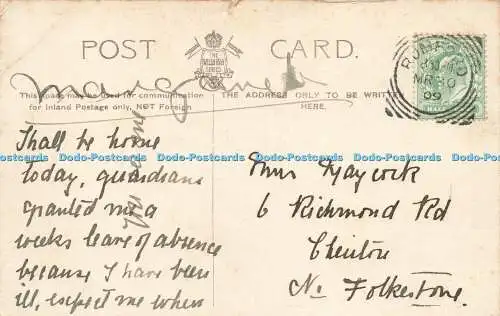 POST CARD.
THE
WELLINGTON
SERIES
This space may be used for communication
for Inland Postage only, NOT Foreign
THE ADDRESS ONLY TO BE WRITTEN
HERE.
Shall be home
today, guardians
granted me a
weeks leave of absence
because I have been
ill, expect me when
you
Miss Haycock
6 Richmond Rd
Cheriton
Nr Folkestone.
ROMFORD
MR 30
09
Dodo-Postcards Dodo-Postcards Dodo-Postcards Dodo-Postcards Dodo-Postcards